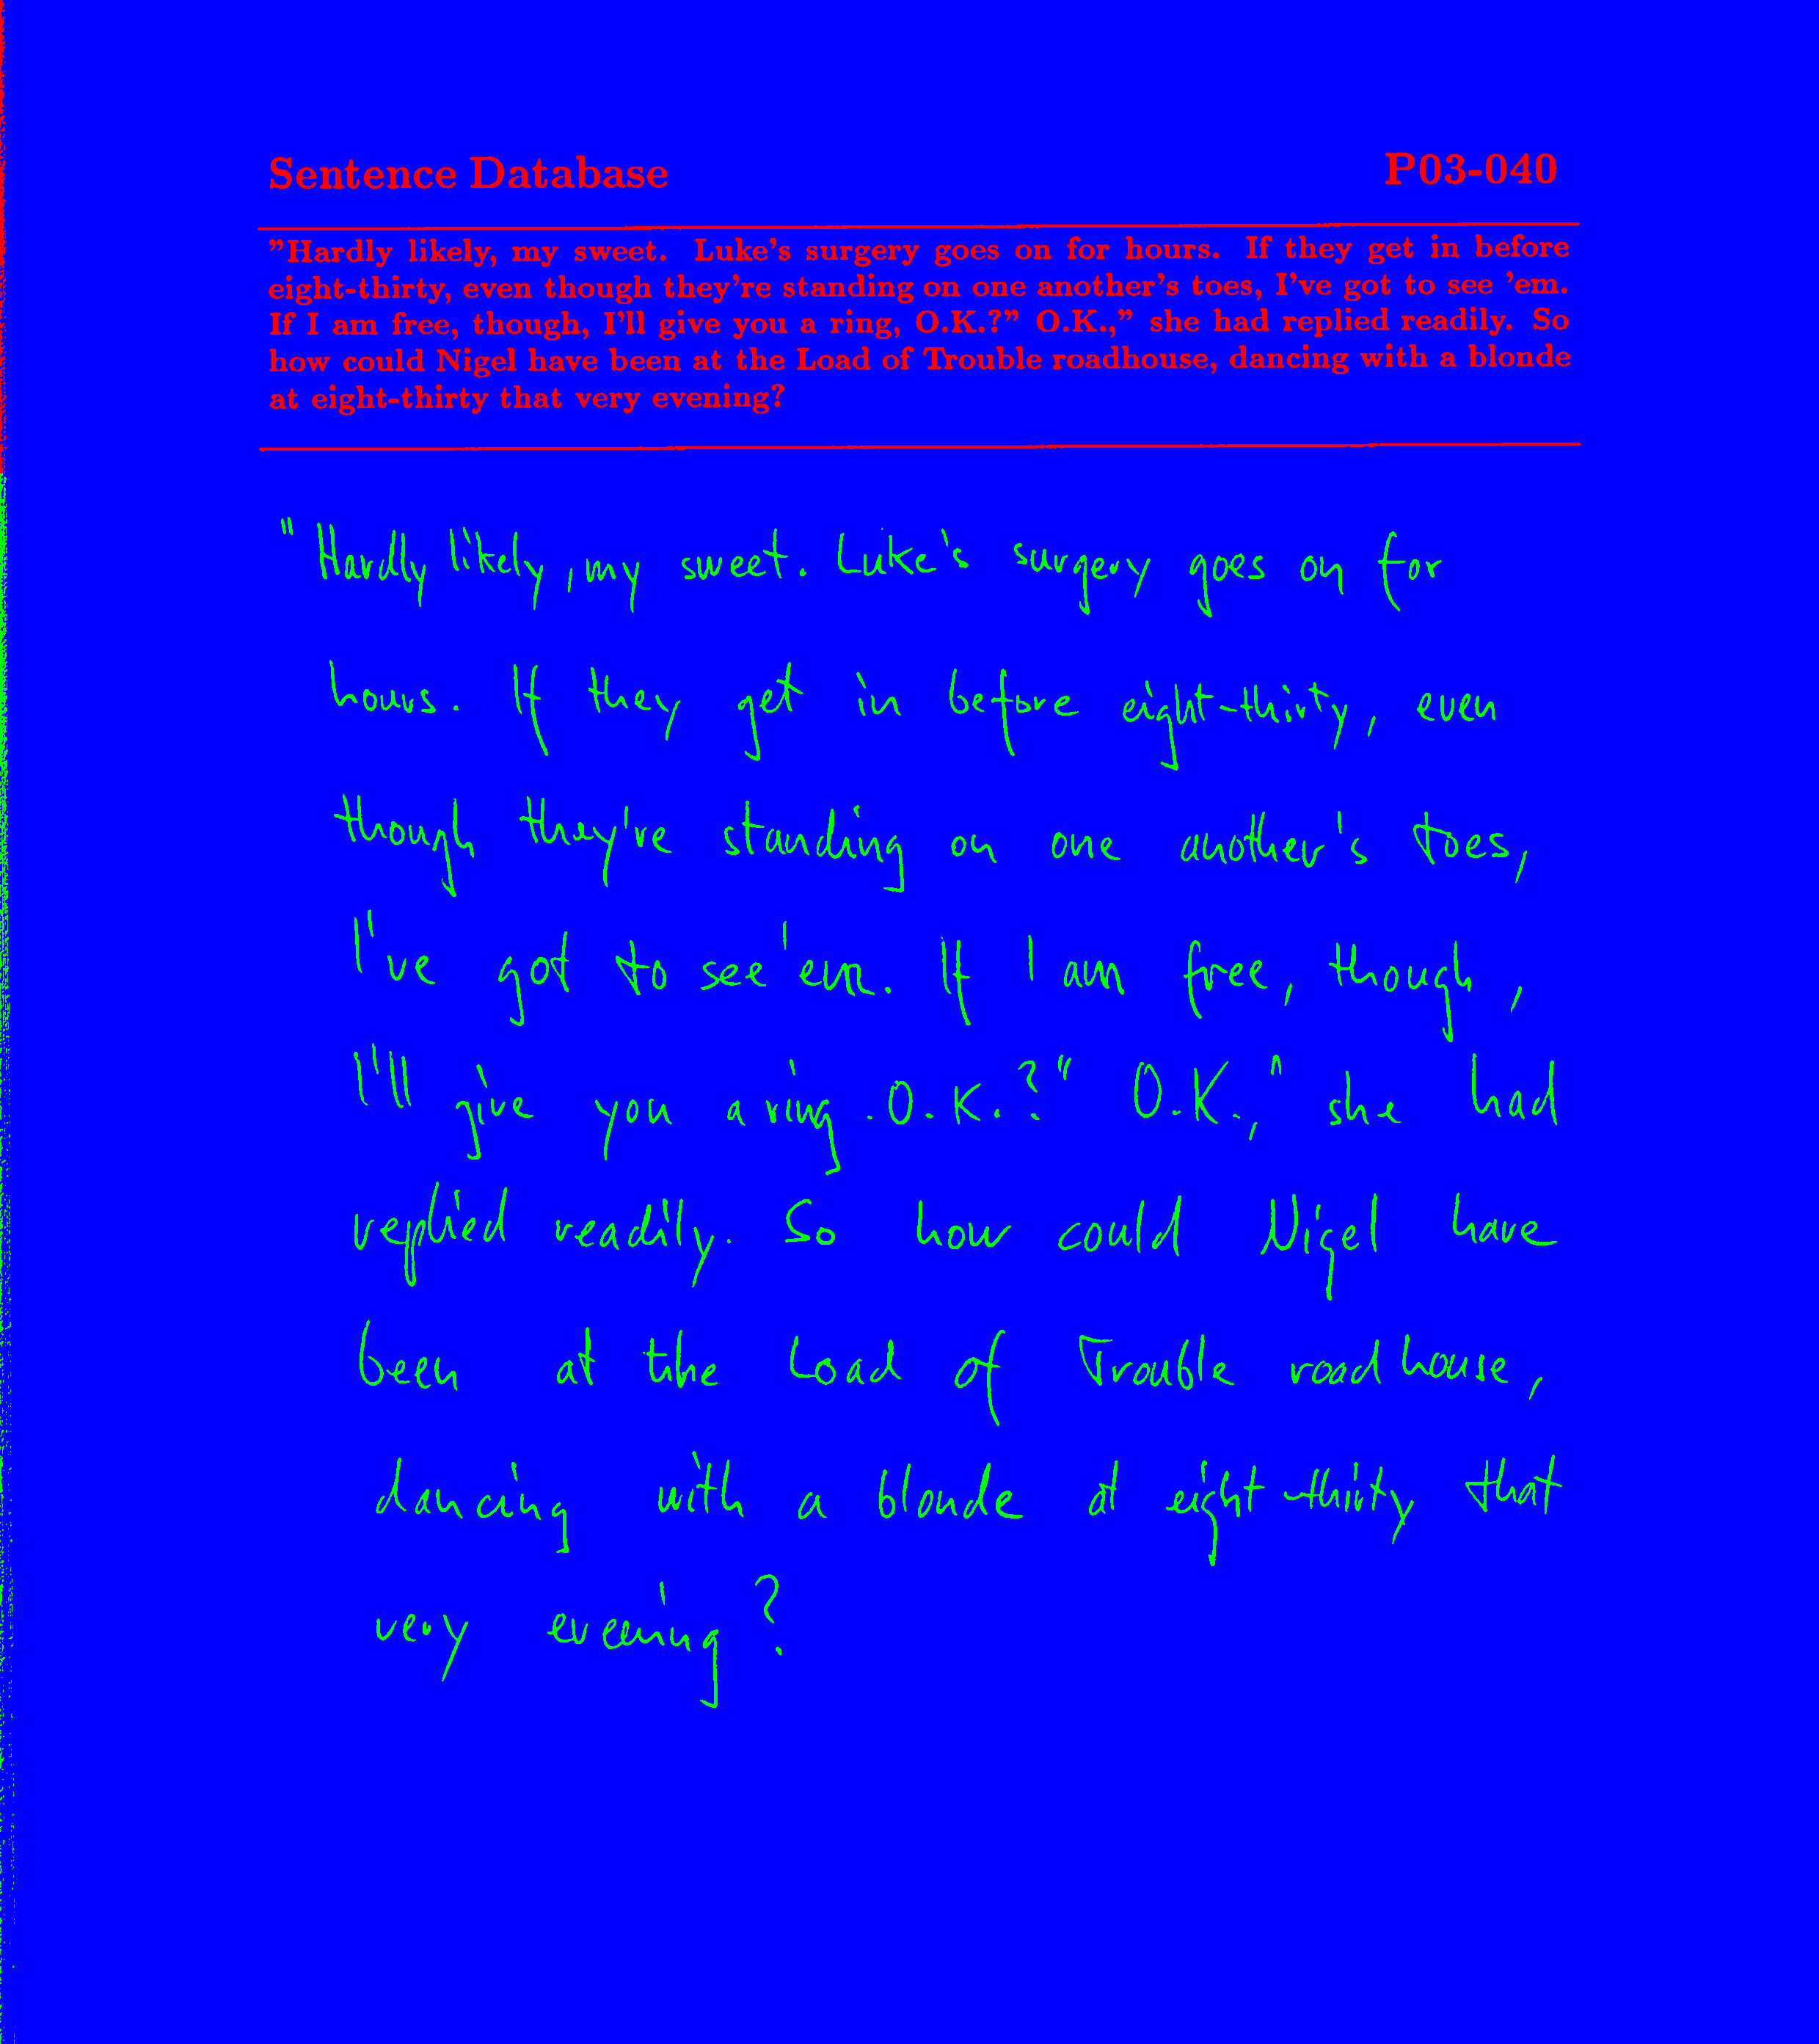 Sentence Database P03-040
"Hardly likely, my sweet. Luke's surgery goes on for hours. If they get in before
eight-thirty, even though they're standing on one another's toes, I've got to see 'em.
If I am free, though, I'll give you a ring, O.K.?" O.K.," she had replied readily. So
how could Nigel have been at the Load of Trouble roadhouse, dancing with a blonde
at eight-thirty that very evening?
"Hardly likely, my sweet. Luke's surgery goes on for
hours. If they get in before eight-thirty, even
though they're standing on one another's toes,
I've got to see 'em. If I am free, though,
I'll give you a ring. O.K.?" O.K.," she had
replied readily. So how could Nigel have
been at the Load of Trouble roadhouse,
dancing with a blonde at eight-thirty that
very evening?